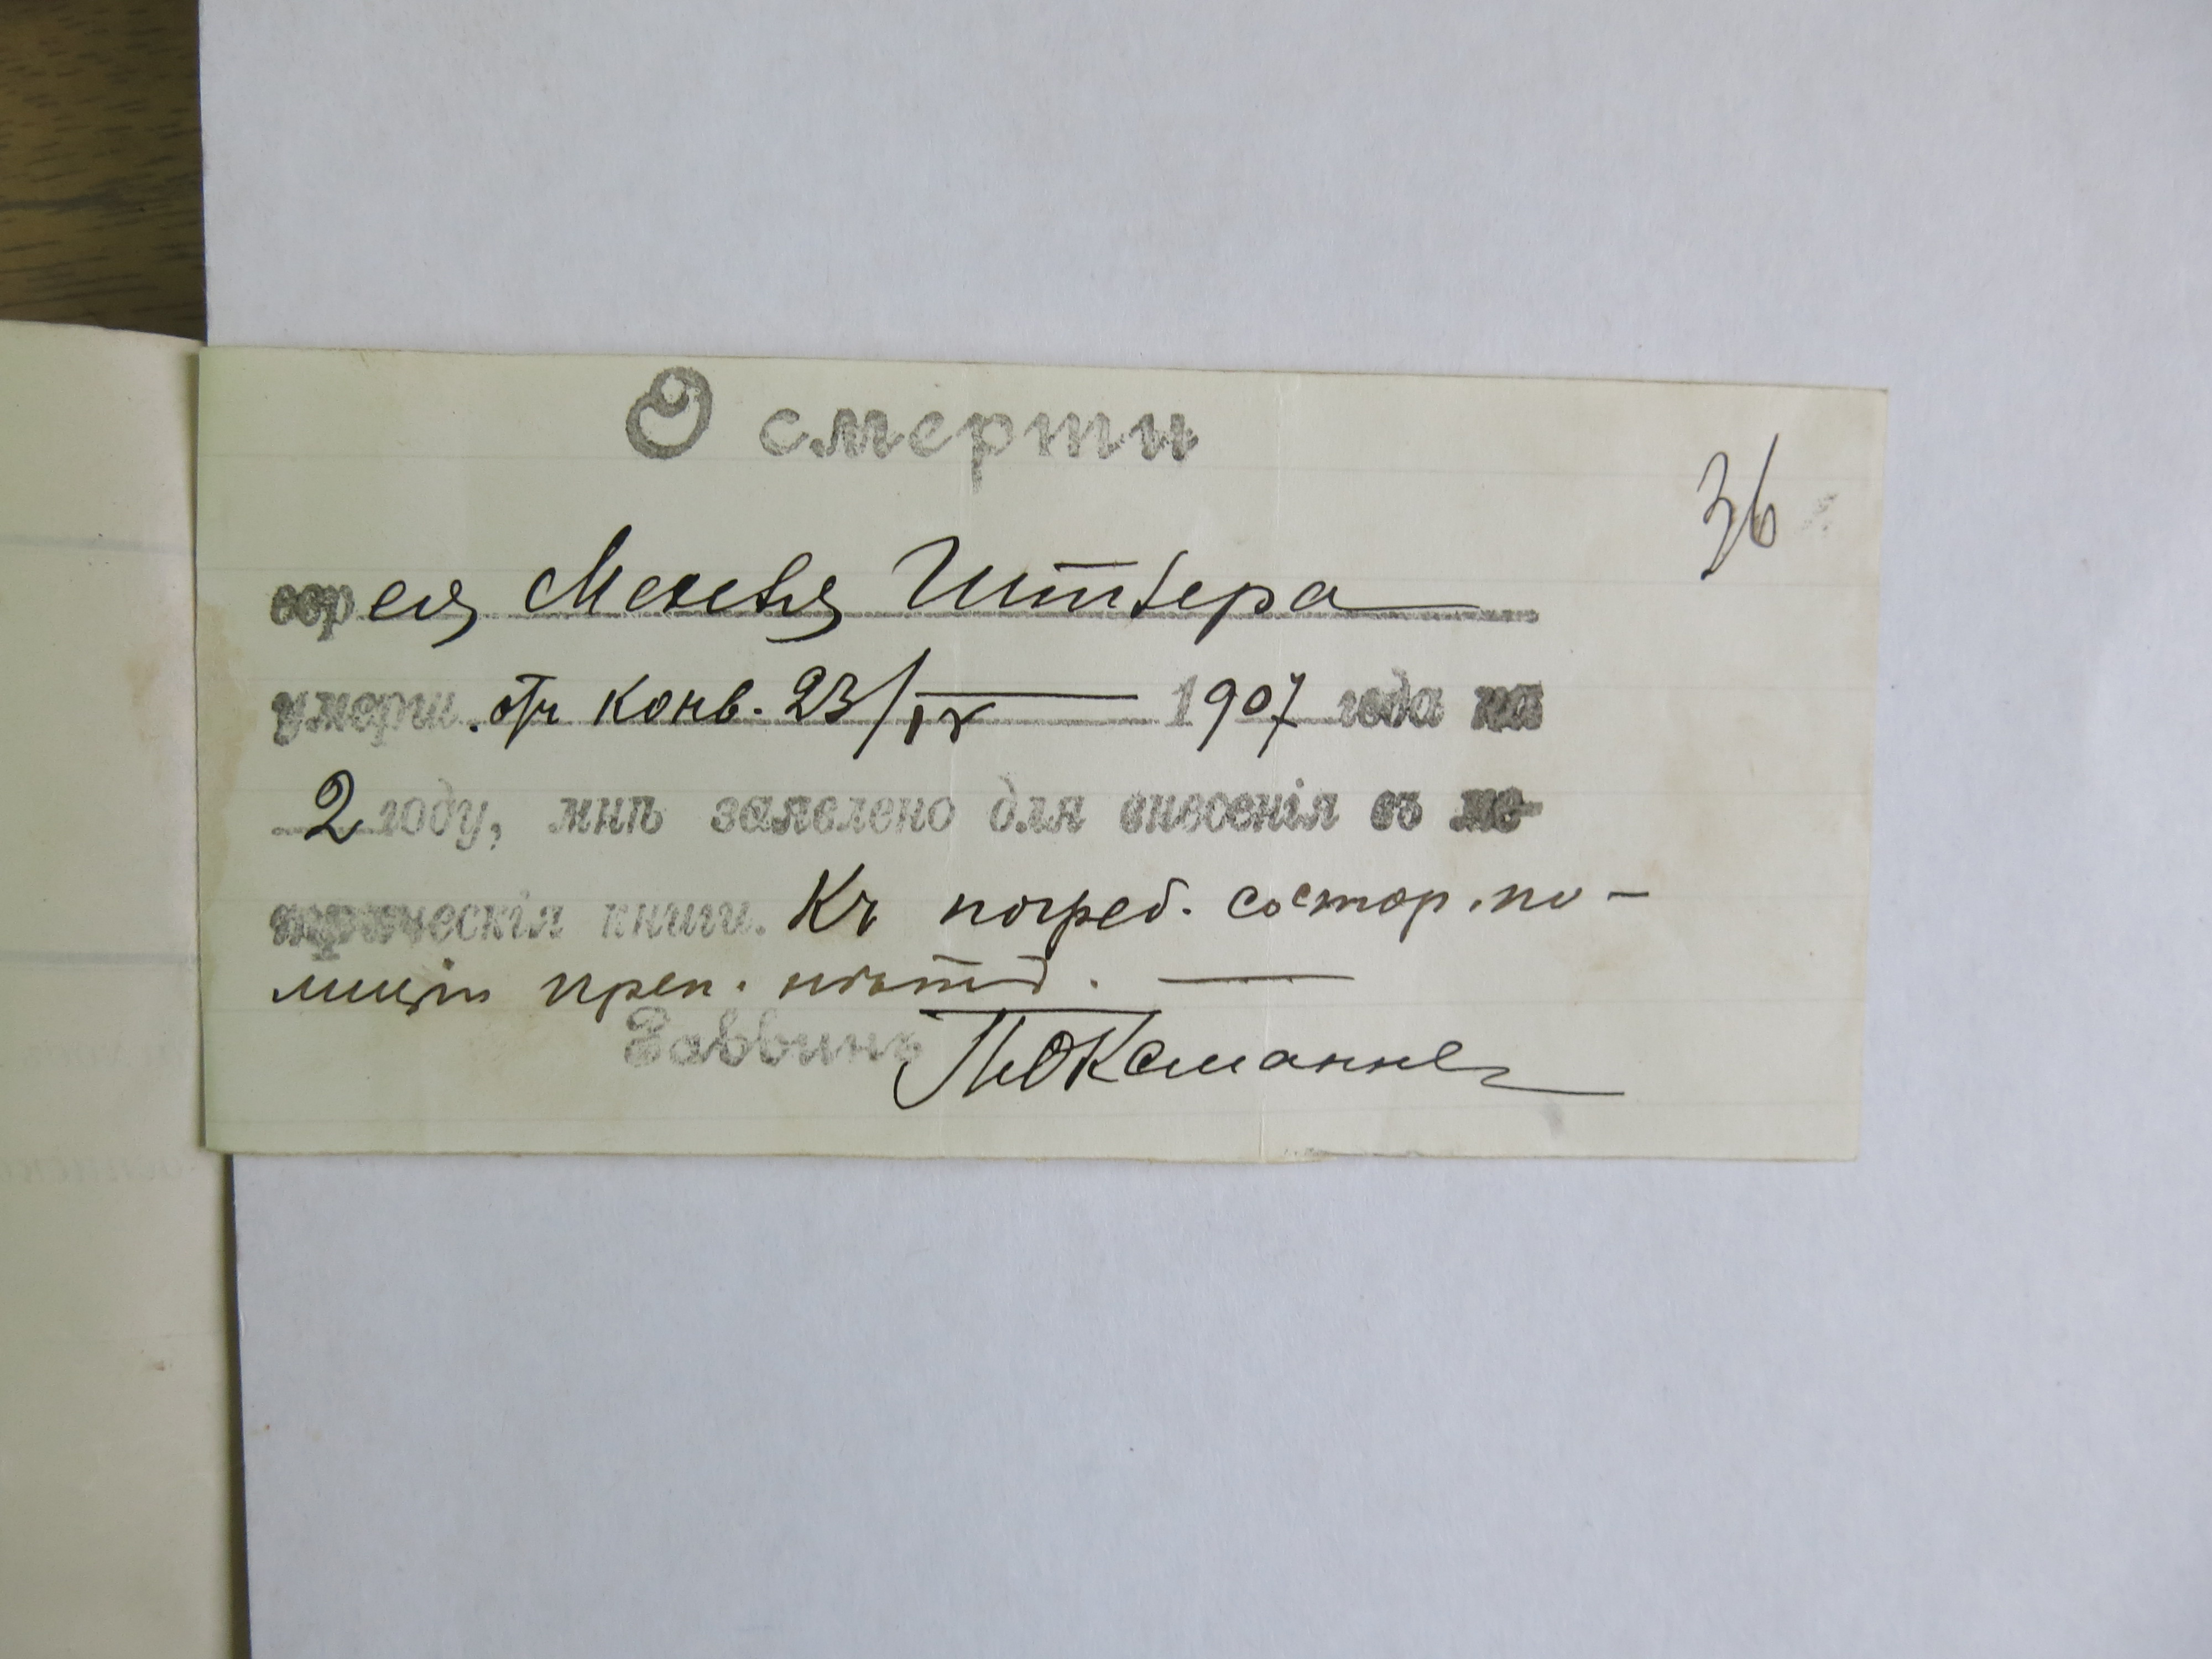 О смерти
36
еврея Моисея Штивера
умерш. отъ конв. 23/IX 1907 года на
2 году, мнѣ заявлено для внесенія въ ме-
трическія книги. Къ погреб. со стор. по-
лиціи преп. нѣтъ.
Раввинъ